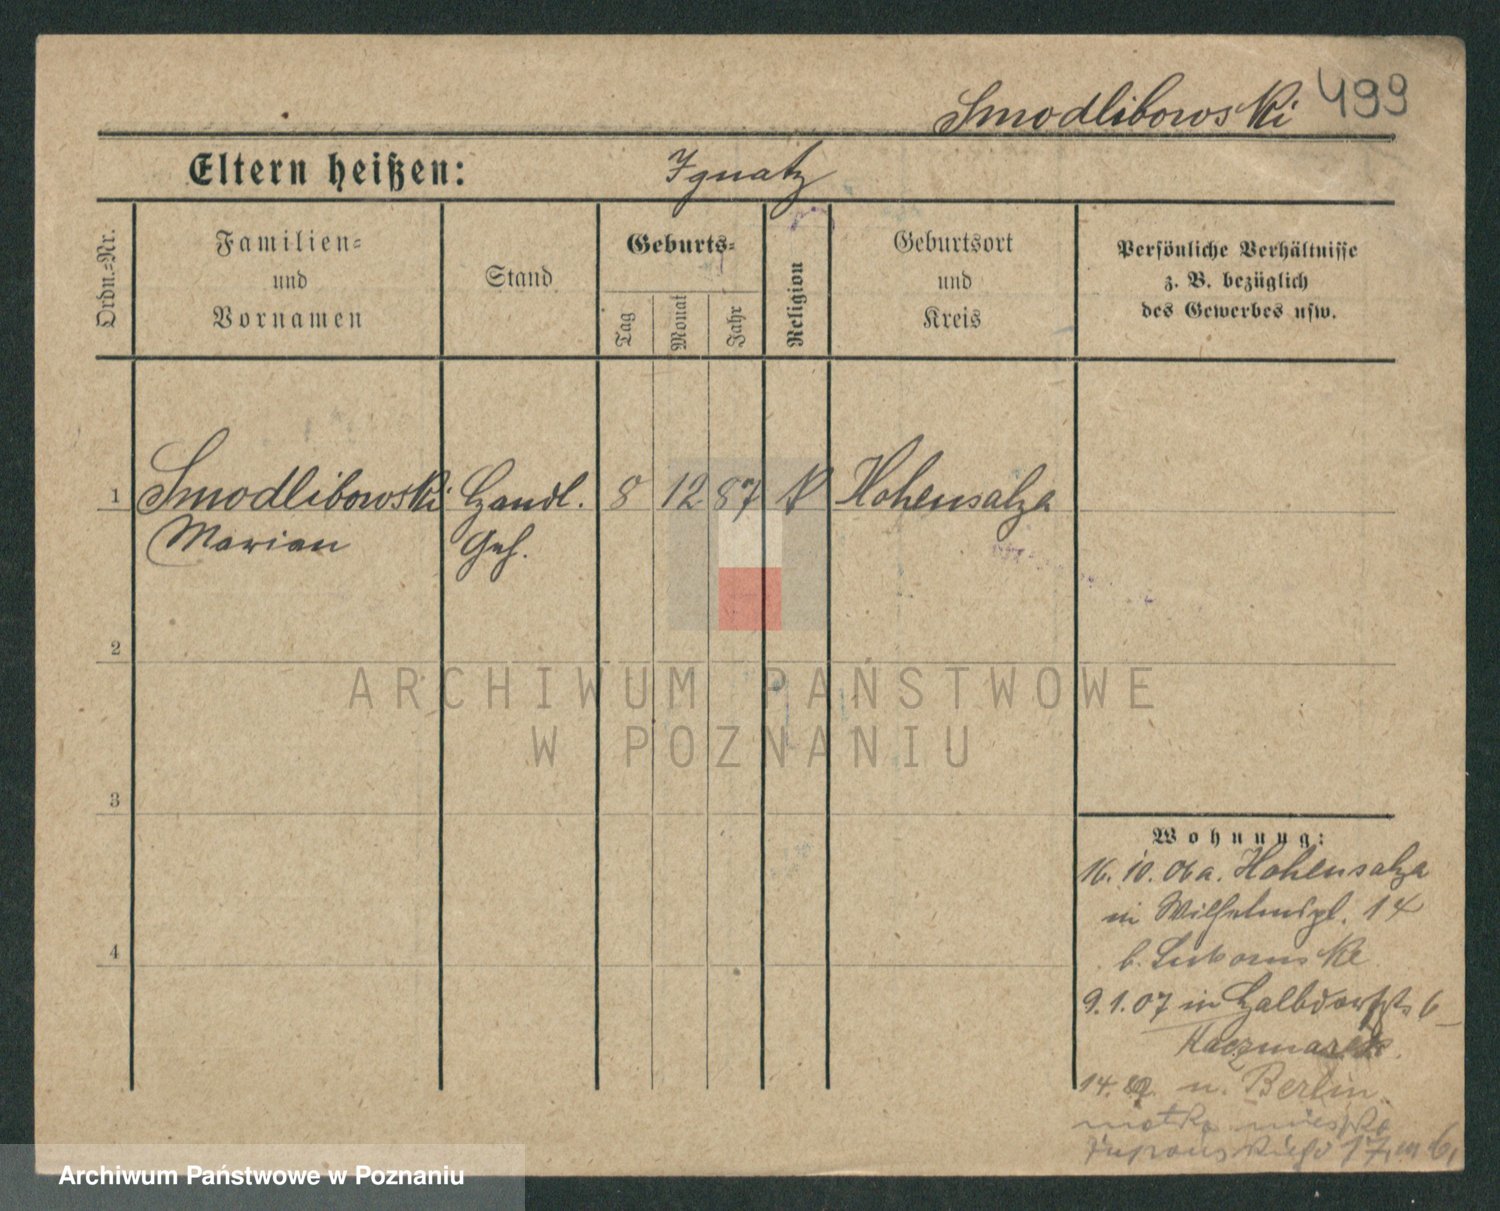 Smodlibowski 499
Eltern heißen: Ignatz
Ordn.=Nr.
Familien=
und
Vornamen
Stand
Geburts=
Tag
Monat
Jahr
Religion
Geburtsort
und
Kreis
Persönliche Verhältnisse
z. B. bezüglich
des Gewerbes usw.
1 Smodlibowski Handl. 8 12 87 K Hohensalza
Marian Geh.
2
3
4
Wohnung:
16. 10. 06 a. Hohensalza
in Wilhelmspl. 14
b.
9.1.07 in Halbdorfstr 6
Kaczmarek
14. u. Berlin
matka mieszka
Żupańskiego 17, m 6,
ARCHIWUM PAŃSTWOWE
W POZNANIU
Archiwum Państwowe w Poznaniu